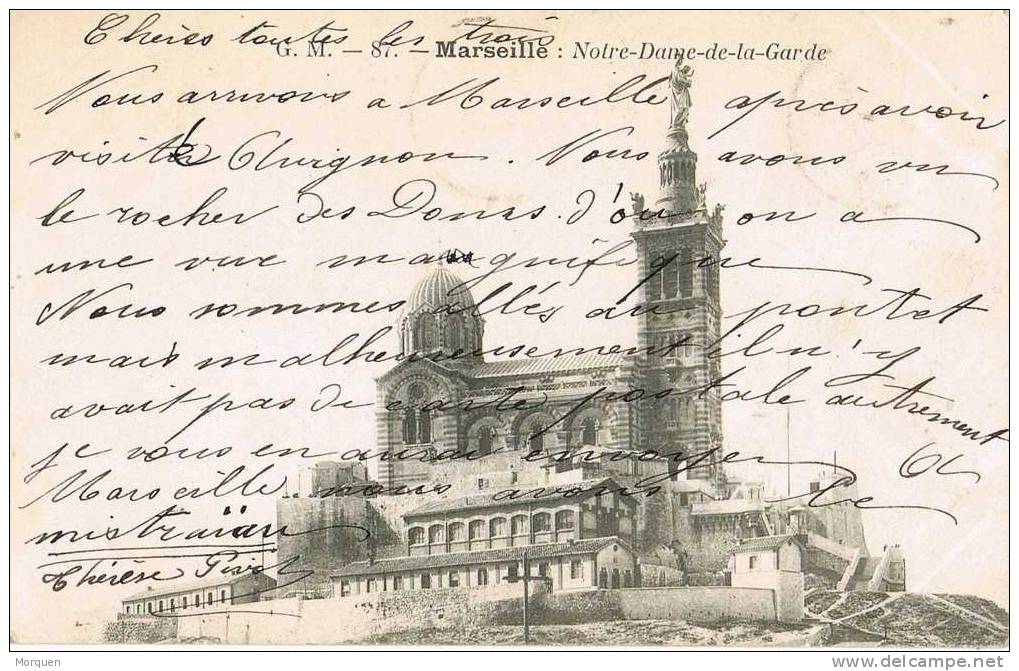 Chères toutes les trois
G. M. — 87. — Marseille : Notre-Dame-de-la-Garde
Nous arrivons a Marseille après avoir
visité Avignon. Nous avons vu
le rocher des Doms. d'où on a
une vue magnifique
Nous sommes allés au pontet
mais malheureusement il n'y
avait pas de carte postale autrement
je vous en aurai envoyer
Marseille nous avons le
mistraïau
Thérèse
Morquen
www.delcampe.net